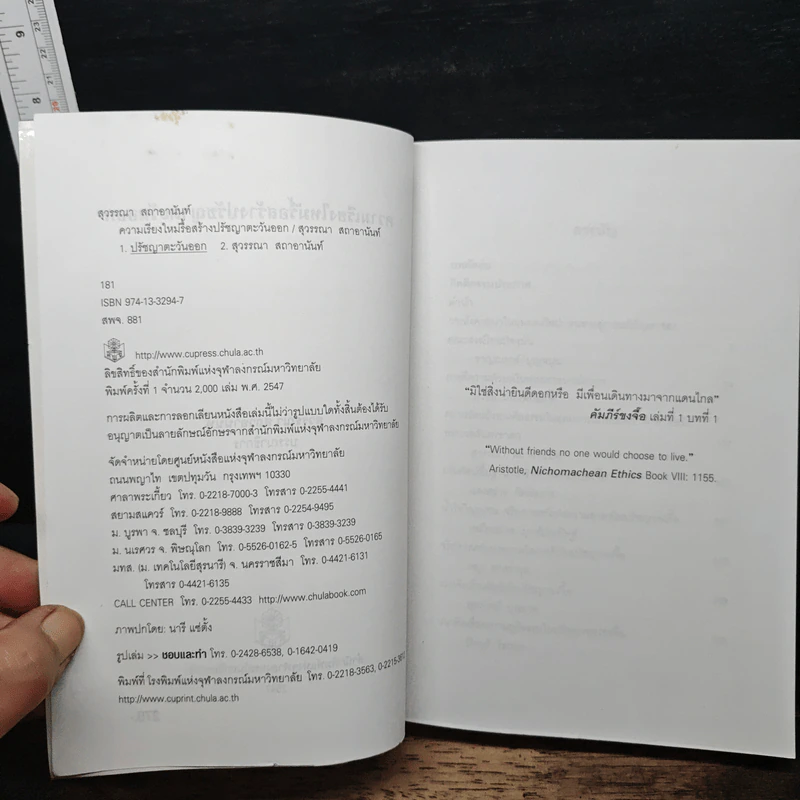 สุวรรณา สถาอานันท์
ความเรียงใหม่รื้อสร้างปรัชญาตะวันออก / สุวรรณา สถาอานันท์
1. ปรัชญาตะวันออก 2. สุวรรณา สถาอานันท์
181
ISBN 974-13-3294-7
สพจ. 881
http://www.cupress.chula.ac.th
ลิขสิทธิ์ของสำนักพิมพ์แห่งจุฬาลงกรณ์มหาวิทยาลัย
พิมพ์ครั้งที่ 1 จำนวน 2,000 เล่ม พ.ศ. 2547
การผลิตและการลอกเลียนหนังสือเล่มนี้ไม่ว่ารูปแบบใดทั้งสิ้นต้องได้รับ
อนุญาตเป็นลายลักษณ์อักษรจากสำนักพิมพ์แห่งจุฬาลงกรณ์มหาวิทยาลัย
จัดจำหน่ายโดยศูนย์หนังสือแห่งจุฬาลงกรณ์มหาวิทยาลัย
ถนนพญาไท เขตปทุมวัน กรุงเทพฯ 10330
ศาลาพระเกี้ยว โทร. 0-2218-7000-3 โทรสาร 0-2255-4441
สยามสแควร์ โทร. 0-2218-9888 โทรสาร 0-2254-9495
ม. บูรพา จ. ชลบุรี โทร. 0-3839-3239 โทรสาร 0-3839-3239
ม. นเรศวร จ. พิษณุโลก โทร. 0-5526-0162-5 โทรสาร 0-5526-0165
มทส. (ม. เทคโนโลยีสุรนารี) จ. นครราชสีมา โทร. 0-4421-6131
โทรสาร 0-4421-6135
CALL CENTER โทร. 0-2255-4433 http://www.chulabook.com
ภาพปกโดย: นารี แซ่ตั้ง
รูปเล่ม >> ชอบและทำ โทร. 0-2428-6538, 0-1642-0419
พิมพ์ที่ โรงพิมพ์แห่งจุฬาลงกรณ์มหาวิทยาลัย โทร. 0-2218-3563,
http://www.cuprint.chula.ac.th
"มิใช่สิ่งน่ายินดีดอกหรือ มีเพื่อนเดินทางมาจากแดนไกล"
คัมภีร์ขงจื๊อ เล่มที่ 1 บทที่ 1
"Without friends no one would choose to live."
Aristotle, Nichomachean Ethics Book VIII: 1155.